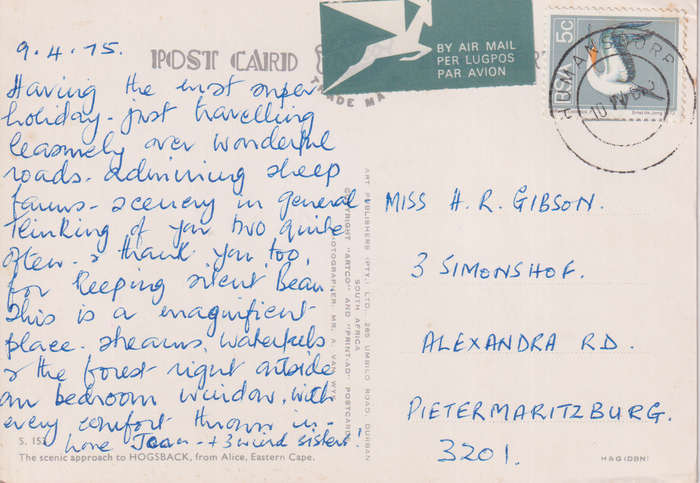 9.4.75.
POST CARD
TRADE MA
BY AIR MAIL
PER LUGPOS
PAR AVION
5c
RSA
HUMANSDORP
10 IV
Having the most super
holiday - just travelling
leasurely over wonderful
roads - admiring sheep
farms - scenery in general
Thinking of you two quite
often - & thank you, too,
for keeping silent Bean.
This is a magnificent
place. streams, waterfalls
& the forest right outside
our bedroom window, with
every comfort thrown in -
love Joan - + 3 weird sisters!
S. 153
The scenic approach to HOGSBACK, from Alice, Eastern Cape.
ART PUBLISHERS (PTY.) LTD., 285 UMBILO ROAD, DURBAN
SOUTH AFRICA
COPYRIGHT "ARTCO" AND "PRINT-AD" POSTCARDS
PHOTOGRAPHER: MR. A. VAN WYK
MISS H. R. GIBSON.
3 SIMONSHOF.
ALEXANDRA RD.
PIETERMARITZBURG.
3201.
HAG (DBN)